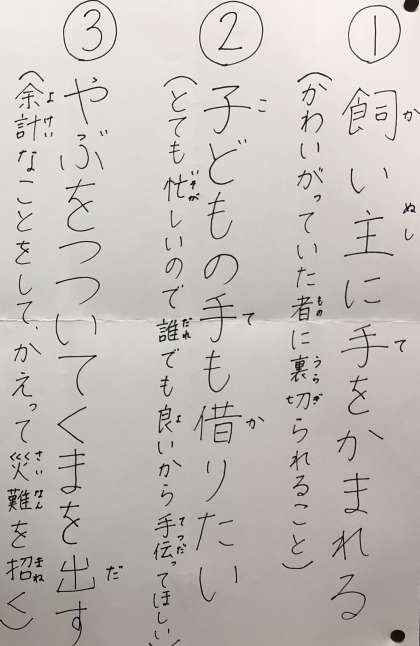 ①
飼い主に手をかまれる
かぬして
(かわいがっていた者に裏切られること)
ものうらぎ
②
子どもの手も借りたい
こてか
(とても忙しいので誰でも良いから手伝ってほしい)
いそがだれよてつだ
③
やぶをつついてくまを出す
だ
(余計なことをして、かえって災難を招く)
よけいさいなんまね